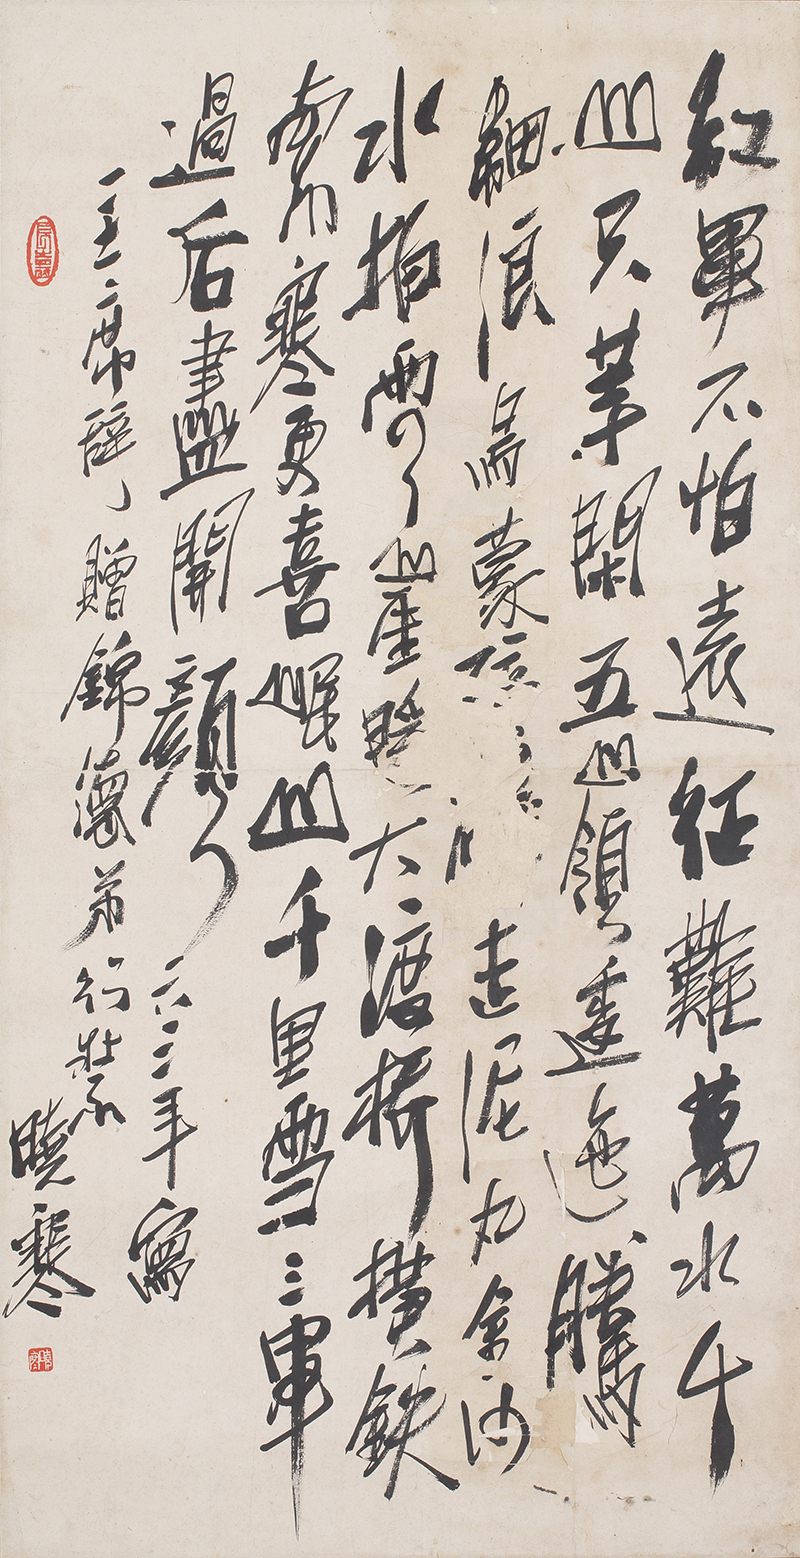 紅軍不怕遠征難萬水千
山只等閑五嶺逶迤騰
細浪烏蒙走泥丸金沙
水拍雲崖暖大渡橋橫鉄
索寒更喜岷山千里雪三軍
過后盡開顏 六年寫
主席辭 贈錦弟行壯 曉寒
長壽
曉寒